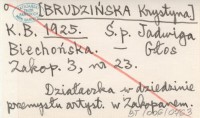 [BRUDZIŃSKA Krystyna]
K.B. 1925. Ś.p. Jadwiga
Biechońska. — Głos
Zakop. 3, nr 23.
Działaczka w dziedzinie
przemysłu artyst. w Zakopanem.